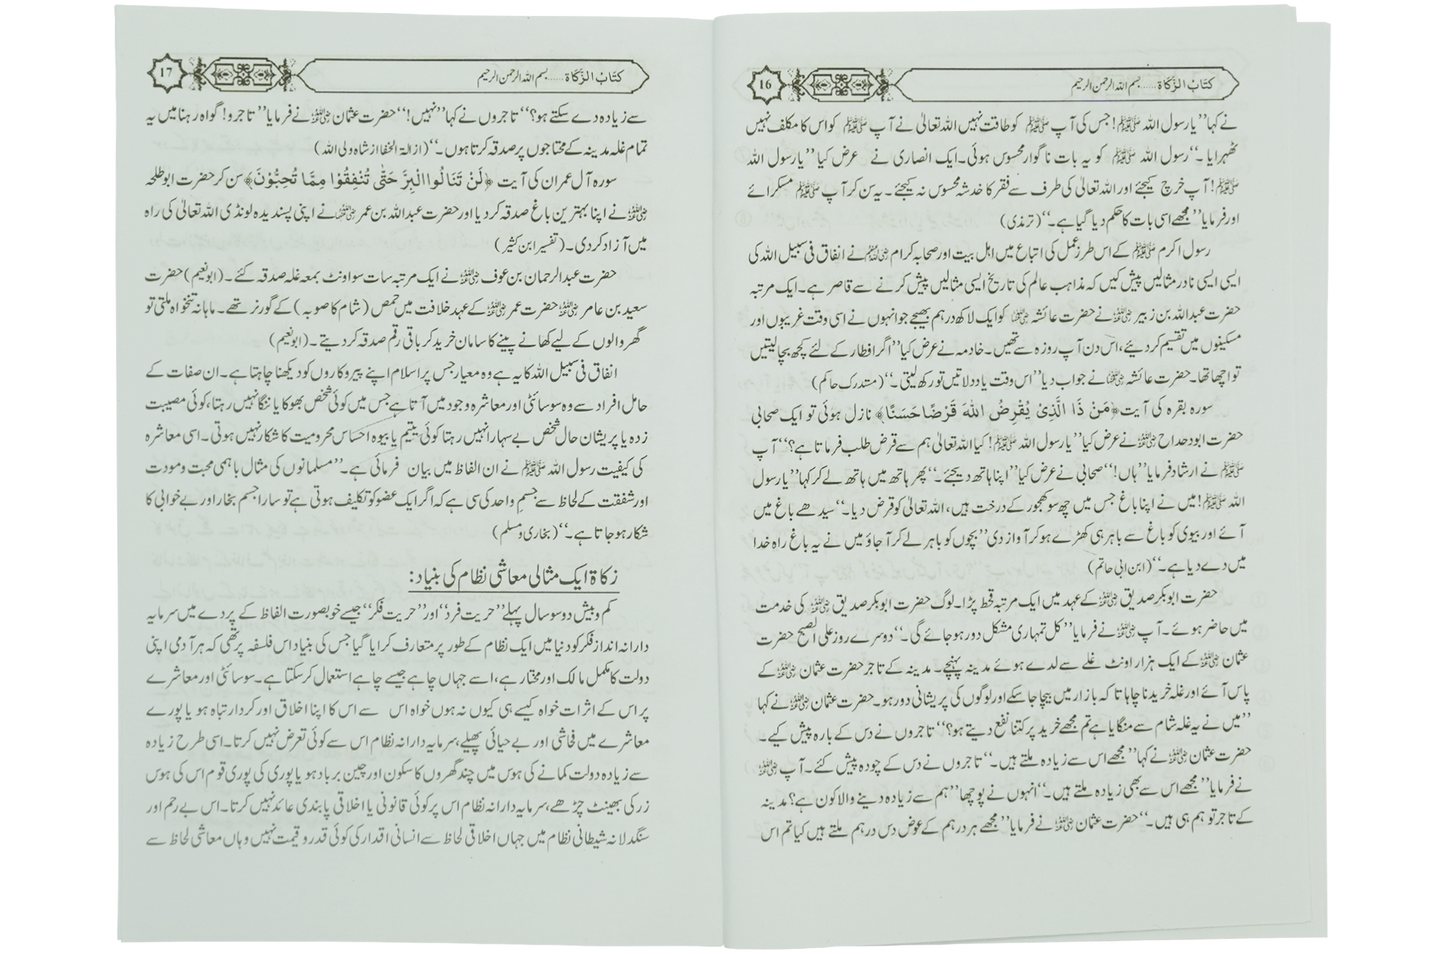 کتابُ الزَّکاۃ ...... بسم اللہ الرحمن الرحیم
16
نے کہا ’’یا رسول اللہ ﷺ! جس کی آپ ﷺ کو طاقت نہیں اللہ تعالیٰ نے آپ ﷺ کو اس کا مکلف نہیں
ٹھہرایا۔‘‘ رسول اللہ ﷺ کو یہ بات ناگوار محسوس ہوئی۔ ایک انصاری نے عرض کیا ’’یا رسول اللہ
ﷺ! آپ خرچ کیجئے اور اللہ تعالیٰ کی طرف سے فقر کا خدشہ محسوس نہ کیجئے۔ یہ سن کر آپ ﷺ مسکرائے
اور فرمایا ’’مجھے اسی بات کا حکم دیا گیا ہے۔‘‘ (ترمذی)
رسول اکرم ﷺ کے اس طرز عمل کی اتباع میں اہل بیت اور صحابہ کرام نے انفاق فی سبیل اللہ کی
ایسی ایسی نادر مثالیں پیش کیں کہ مذاہب عالم کی تاریخ ایسی مثالیں پیش کرنے سے قاصر ہے۔ ایک مرتبہ
حضرت عبداللہ بن زبیر نے حضرت عائشہ کو ایک لاکھ درہم بھیجے جو انہوں نے اسی وقت غریبوں اور
مسکینوں میں تقسیم کر دیئے، اس دن آپ روزہ سے تھیں۔ خادمہ نے عرض کیا ’’اگر افطار کے لئے کچھ بچا لیتیں
تو اچھا تھا۔ حضرت عائشہ نے جواب دیا ’’اس وقت یاد دلاتیں تو رکھ لیتی۔‘‘ (متدرک حاکم)
سورہ بقرہ کی آیت ﴿مَنْ ذَا الَّذِیْ یُقْرِضُ اللہَ قَرْضًا حَسَنًا﴾ نازل ہوئی تو ایک صحابی
حضرت ابودحداح نے عرض کیا ’’یا رسول اللہ ﷺ! کیا اللہ تعالیٰ ہم سے قرض طلب فرماتا ہے؟‘‘ آپ
ﷺ نے ارشاد فرمایا ’’ہاں!‘‘ صحابی نے عرض کیا ’’اپنا ہاتھ دیجئے۔‘‘ پھر ہاتھ میں ہاتھ لے کر کہا ’’یا رسول
اللہ ﷺ! میں نے اپنا باغ جس میں چھ سو کھجور کے درخت ہیں، اللہ تعالیٰ کو قرض دیا۔‘‘ سیدھے باغ میں
آئے اور بیوی کو باغ سے باہر ہی کھڑے ہو کر آواز دی ’’بچوں کو باہر لے کر آ جاؤ میں نے یہ باغ راہ خدا
میں دے دیا ہے۔‘‘ (ابن ابی حاتم)
حضرت ابوبکر صدیق کے عہد میں ایک مرتبہ قحط پڑا۔ لوگ حضرت ابوبکر صدیق کی خدمت
میں حاضر ہوئے۔ آپ نے فرمایا ’’کل تمہاری مشکل دور ہو جائے گی۔‘‘ دوسرے روز علی الصبح حضرت
عثمان کے ایک ہزار اونٹ غلے سے لدے ہوئے مدینہ پہنچے۔ مدینہ کے تاجر حضرت عثمان کے
پاس آئے اور غلہ خریدنا چاہا تا کہ بازار میں بیچا جا سکے اور لوگوں کی پریشانی دور ہو۔ حضرت عثمان نے کہا
’’میں نے یہ غلہ شام سے منگایا ہے تم مجھے خرید پر کتنا نفع دیتے ہو؟‘‘ تاجروں نے دس کے بارہ پیش کیے۔
حضرت عثمان نے کہا ’’مجھے اس سے زیادہ ملتے ہیں۔‘‘ تاجروں نے دس کے چودہ پیش کئے۔ آپ
نے فرمایا ’’مجھے اس سے بھی زیادہ ملتے ہیں۔‘‘ انہوں نے پوچھا ’’ہم سے زیادہ دینے والا کون ہے؟ مدینہ
کے تاجر تو ہم ہی ہیں۔‘‘ حضرت عثمان نے فرمایا ’’مجھے ہر درہم کے عوض دس درہم ملتے ہیں کیا تم اس
کتابُ الزَّکاۃ ...... بسم اللہ الرحمن الرحیم
17
سے زیادہ دے سکتے ہو؟‘‘ تاجروں نے کہا ’’نہیں!‘‘ حضرت عثمان نے فرمایا ’’تاجرو! گواہ رہنا میں یہ
تمام غلہ مدینہ کے محتاجوں پر صدقہ کرتا ہوں۔‘‘ (ازالۃ الخفا از شاہ ولی اللہ)
سورہ آل عمران کی آیت ﴿لَنْ تَنَالُوا الْبِرَّ حَتّٰی تُنْفِقُوْا مِمَّا تُحِبُّوْنَ﴾ سن کر حضرت ابوطلحہ
نے اپنا بہترین باغ صدقہ کر دیا اور حضرت عبداللہ بن عمر نے اپنی پسندیدہ لونڈی اللہ تعالیٰ کی راہ
میں آزاد کر دی۔ (تفسیر ابن کثیر)
حضرت عبدالرحمان بن عوف نے ایک مرتبہ سات سو اونٹ بمعہ غلہ صدقہ کئے۔ (ابونعیم) حضرت
سعید بن عامر حضرت عمر کے عہد خلافت میں حمص (شام کا صوبہ) کے گورنر تھے۔ ماہانہ تنخواہ ملتی تو
گھر والوں کے لیے کھانے پینے کا سامان خرید کر باقی رقم صدقہ کر دیتے۔ (ابونعیم)
انفاق فی سبیل اللہ کا یہ ہے وہ معیار جس پر اسلام اپنے پیروکاروں کو دیکھنا چاہتا ہے۔ ان صفات کے
حامل افراد سے وہ سوسائٹی اور معاشرہ وجود میں آتا ہے جس میں کوئی شخص بھوکا یا ننگا نہیں رہتا، کوئی مصیبت
زدہ یا پریشان حال شخص بے سہارا نہیں رہتا کوئی یتیم یا بیوہ احساس محرومیت کا شکار نہیں ہوتی۔ اسی معاشرہ
کی کیفیت رسول اللہ ﷺ نے ان الفاظ میں بیان فرمائی ہے۔ ’’مسلمانوں کی مثال باہمی محبت و مودت
اور شفقت کے لحاظ سے جسم واحد کی سی ہے کہ اگر ایک عضو کو تکلیف ہوتی ہے تو سارا جسم بخار اور بے خوابی کا
شکار ہو جاتا ہے۔‘‘ (بخاری و مسلم)
زکاۃ ایک مثالی معاشی نظام کی بنیاد:
کم و بیش دو سو سال پہلے ’’حریت فرد‘‘ اور ’’حریت فکر‘‘ جیسے خوبصورت الفاظ کے پردے میں سرمایہ
دارانہ انداز فکر کو دنیا میں ایک نظام کے طور پر متعارف کرایا گیا جس کی بنیاد اس فلسفہ پر تھی کہ ہر آدمی اپنی
دولت کا مکمل مالک اور مختار ہے، اسے جہاں چاہے جیسے چاہے استعمال کر سکتا ہے۔ سوسائٹی اور معاشرے
پر اس کے اثرات خواہ کیسے ہی کیوں نہ ہوں خواہ اس سے اس کا اپنا اخلاق اور کردار تباہ ہو یا پورے
معاشرے میں فحاشی اور بے حیائی پھیلے، سرمایہ دارانہ نظام اس سے کوئی تعرض نہیں کرتا۔ اسی طرح زیادہ
سے زیادہ دولت کمانے کی ہوس میں چند گھروں کا سکون اور چین برباد ہو یا پوری کی پوری قوم اس کی ہوس
زر کی بھینٹ چڑھے، سرمایہ دارانہ نظام اس پر کوئی قانونی یا اخلاقی پابندی عائد نہیں کرتا۔ اس بے رحم اور
سنگدلانہ شیطانی نظام میں جہاں اخلاقی لحاظ سے انسانی اقدار کی کوئی قدر و قیمت نہیں وہاں معاشی لحاظ سے